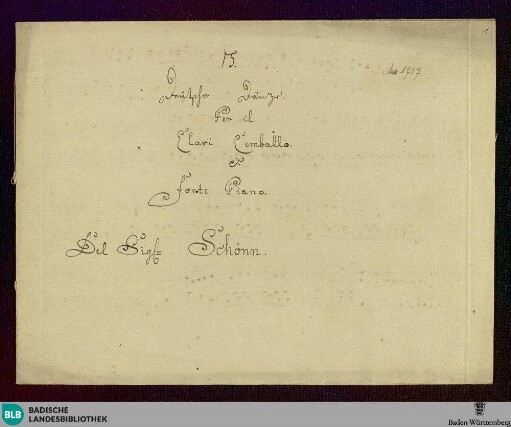 15.
Mus 1717
1
Deütsche Dänze.
Per il
Clavi Cemballo.
Forte Piano.
Del Sig= Schönn.
BLB
BADISCHE
LANDESBIBLIOTHEK
Baden Württemberg